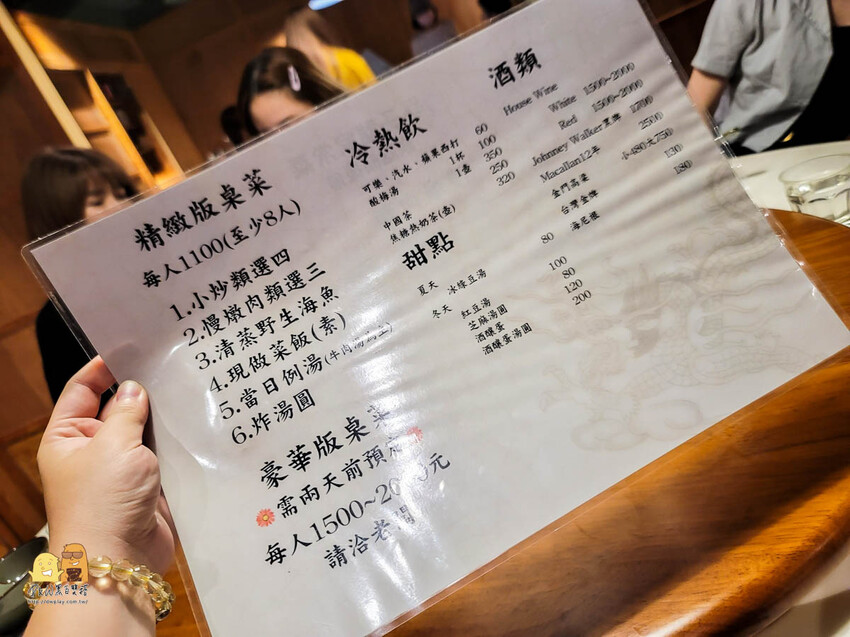 精緻版桌菜
每人1100(至少8人)
1.小炒類選四
2.慢燉肉類選三
3.清蒸野生海魚
4.現做菜飯(素)
5.當日例湯(牛肉湯為主)
6.炸湯圓
豪華版桌菜
需兩天前預訂
每人1500~2000元
請洽老闆
冷熱飲
可樂、汽水、蘋果西打 60
酸梅湯 1杯 100
1壺 350
中國茶 250
焦糖熱奶茶(壺) 320
甜點
夏天 冰綠豆湯 80
冬天 紅豆湯 100
芝麻湯圓 80
酒釀蛋 120
酒釀蛋湯圓 200
酒類
House Wine
White 1500~2000
Red 1500~2000
Johnney Walker黑牌 1700
Macallan12年 2500
金門高粱 小480元750
台灣金牌 130
海尼根 180
http://dwplay.com.tw/